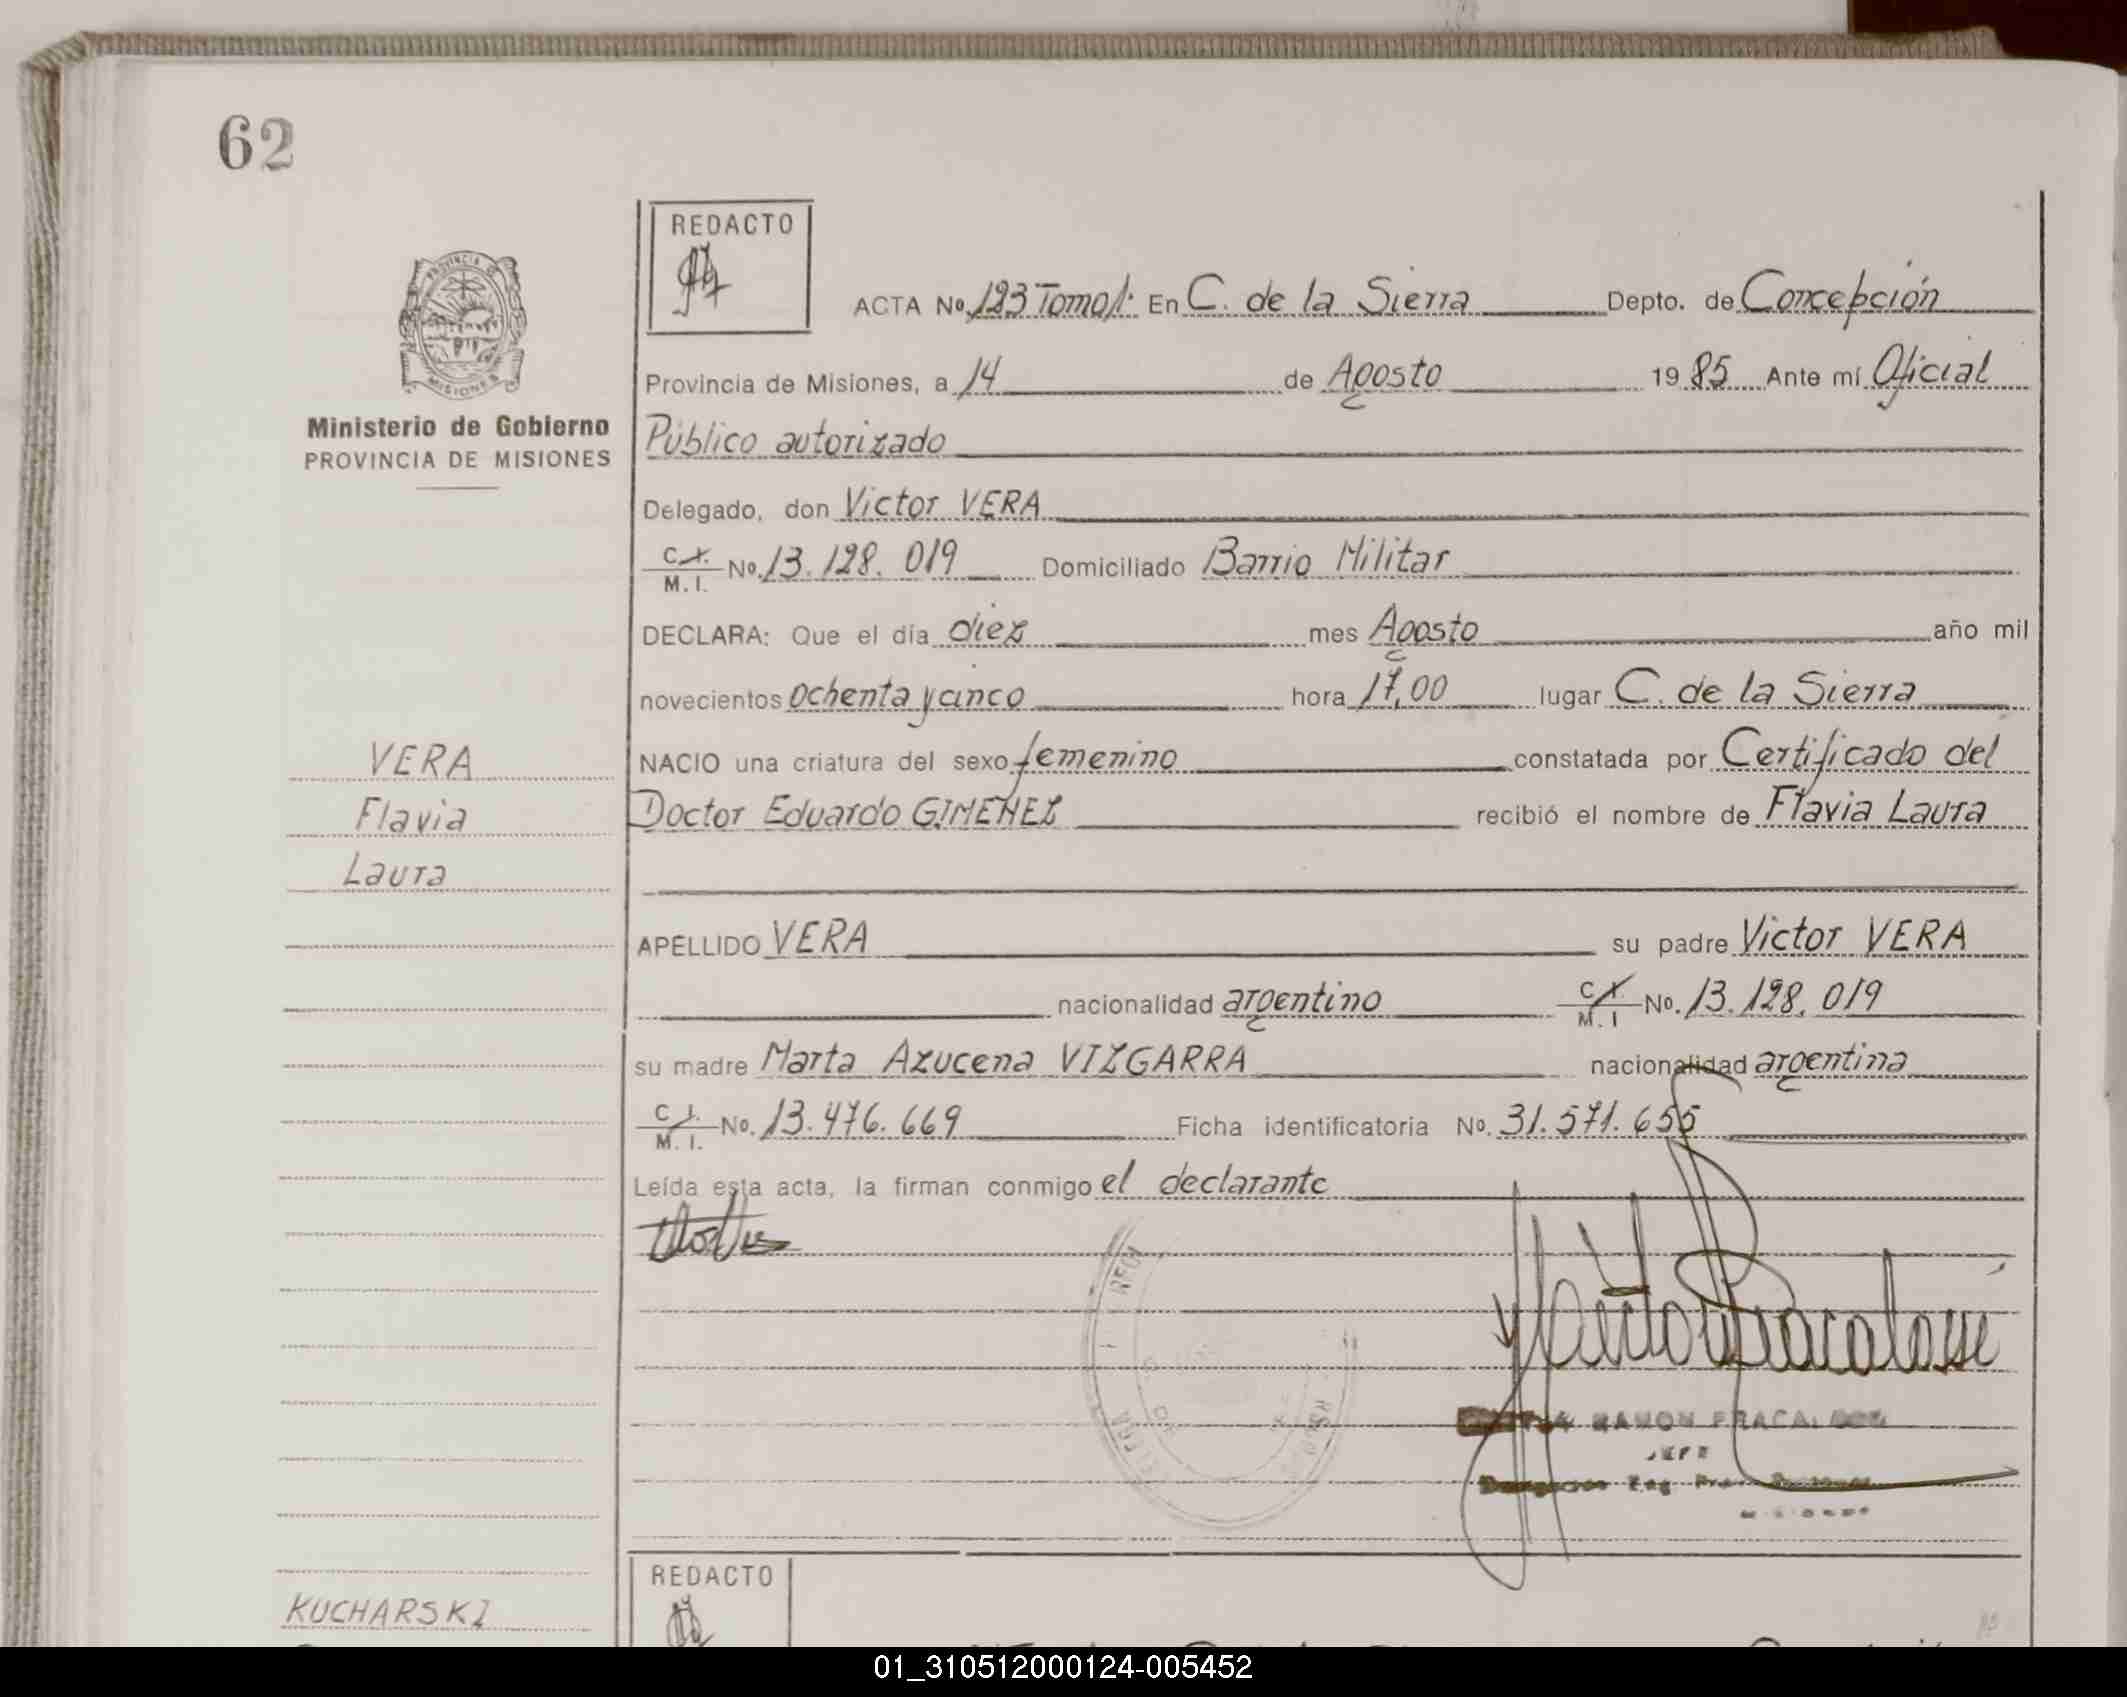 62
REDACTO
ACTA No. 123 Tomo 1: En C. de la Sierra Depto. de Concepción
Provincia de Misiones, a 14 de Agosto 1985 Ante mí Oficial
Público autorizado
Ministerio de Gobierno
PROVINCIA DE MISIONES
Delegado, don Victor VERA
C.I. M.I. No. 13.128.019 Domiciliado Barrio Militar
DECLARA: Que el día diez mes Agosto año mil
novecientos ochenta y cinco hora 17,00 lugar C. de la Sierra
VERA
NACIO una criatura del sexo femenino constatada por Certificado del
Flavia
Doctor Eduardo GIMENEZ recibió el nombre de Flavia Laura
Laura
APELLIDO VERA su padre Victor VERA
nacionalidad argentino C.I. M.I No. 13.128.019
su madre Marta Azucena VIZGARRA nacionalidad argentina
C.I. M.I. No. 13.476.669 Ficha identificatoria No. 31.571.655
Leída esta acta, la firman conmigo el declarante
RAMON
JEFE
REDACTO
KUCHARSKI
01_310512000124-005452